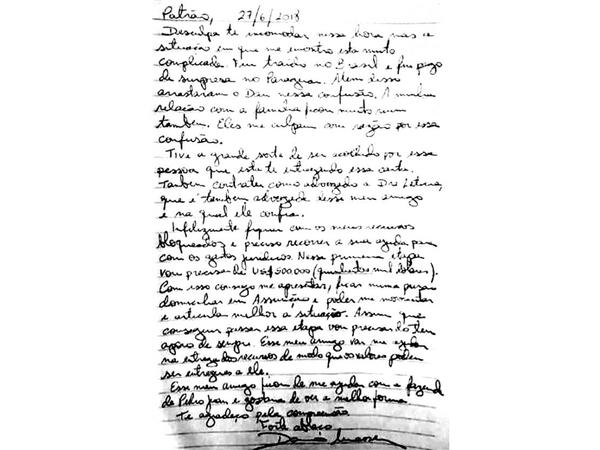 Patrão, 27/6/2018
Desculpa te incomodar nessa hora mas a
situação em que me encontro esta muito
complicada. Fui traido no Brasil e fui pego
de surpresa no Paraguai. Alem disso
arrastaram o Dan nessa confusão. A minha
relação com a familia ficou muito ruim
tambem. Eles me culpam com razão por essa
confusão.
Tive a grande sorte de ser acolhido por esse
pessoa que esta te entregando essa carta.
Tambem contratei como advogada a Dra Leticia,
que é tambem advogada desse meu amigo
e na qual ele confia.
Infelizmente fiquei com os meus recursos
bloqueados e preciso recorrer a sua ajuda para
com os gastos juridicos. Nessa primeira etapa
vou precisar de US$500.000 (quinhentos mil dolares).
Com isso consigo me apresentar, ficar numa prisão
domiciliar em Assunção e poder me movimentar
e articular melhor a situação. Assim que
conseguir passar essa etapa vou precisar do teu
apoio de sempre. Esse meu amigo vai me ajudar
na entrega dos recursos de modo que os valores podem
ser entregues a ele.
Esse meu amigo ficou de me ajudar com a fazenda
de Pedro Juan e gostaria de ver a melhor forma
Te agradeço pela compreensão
Forte abraço